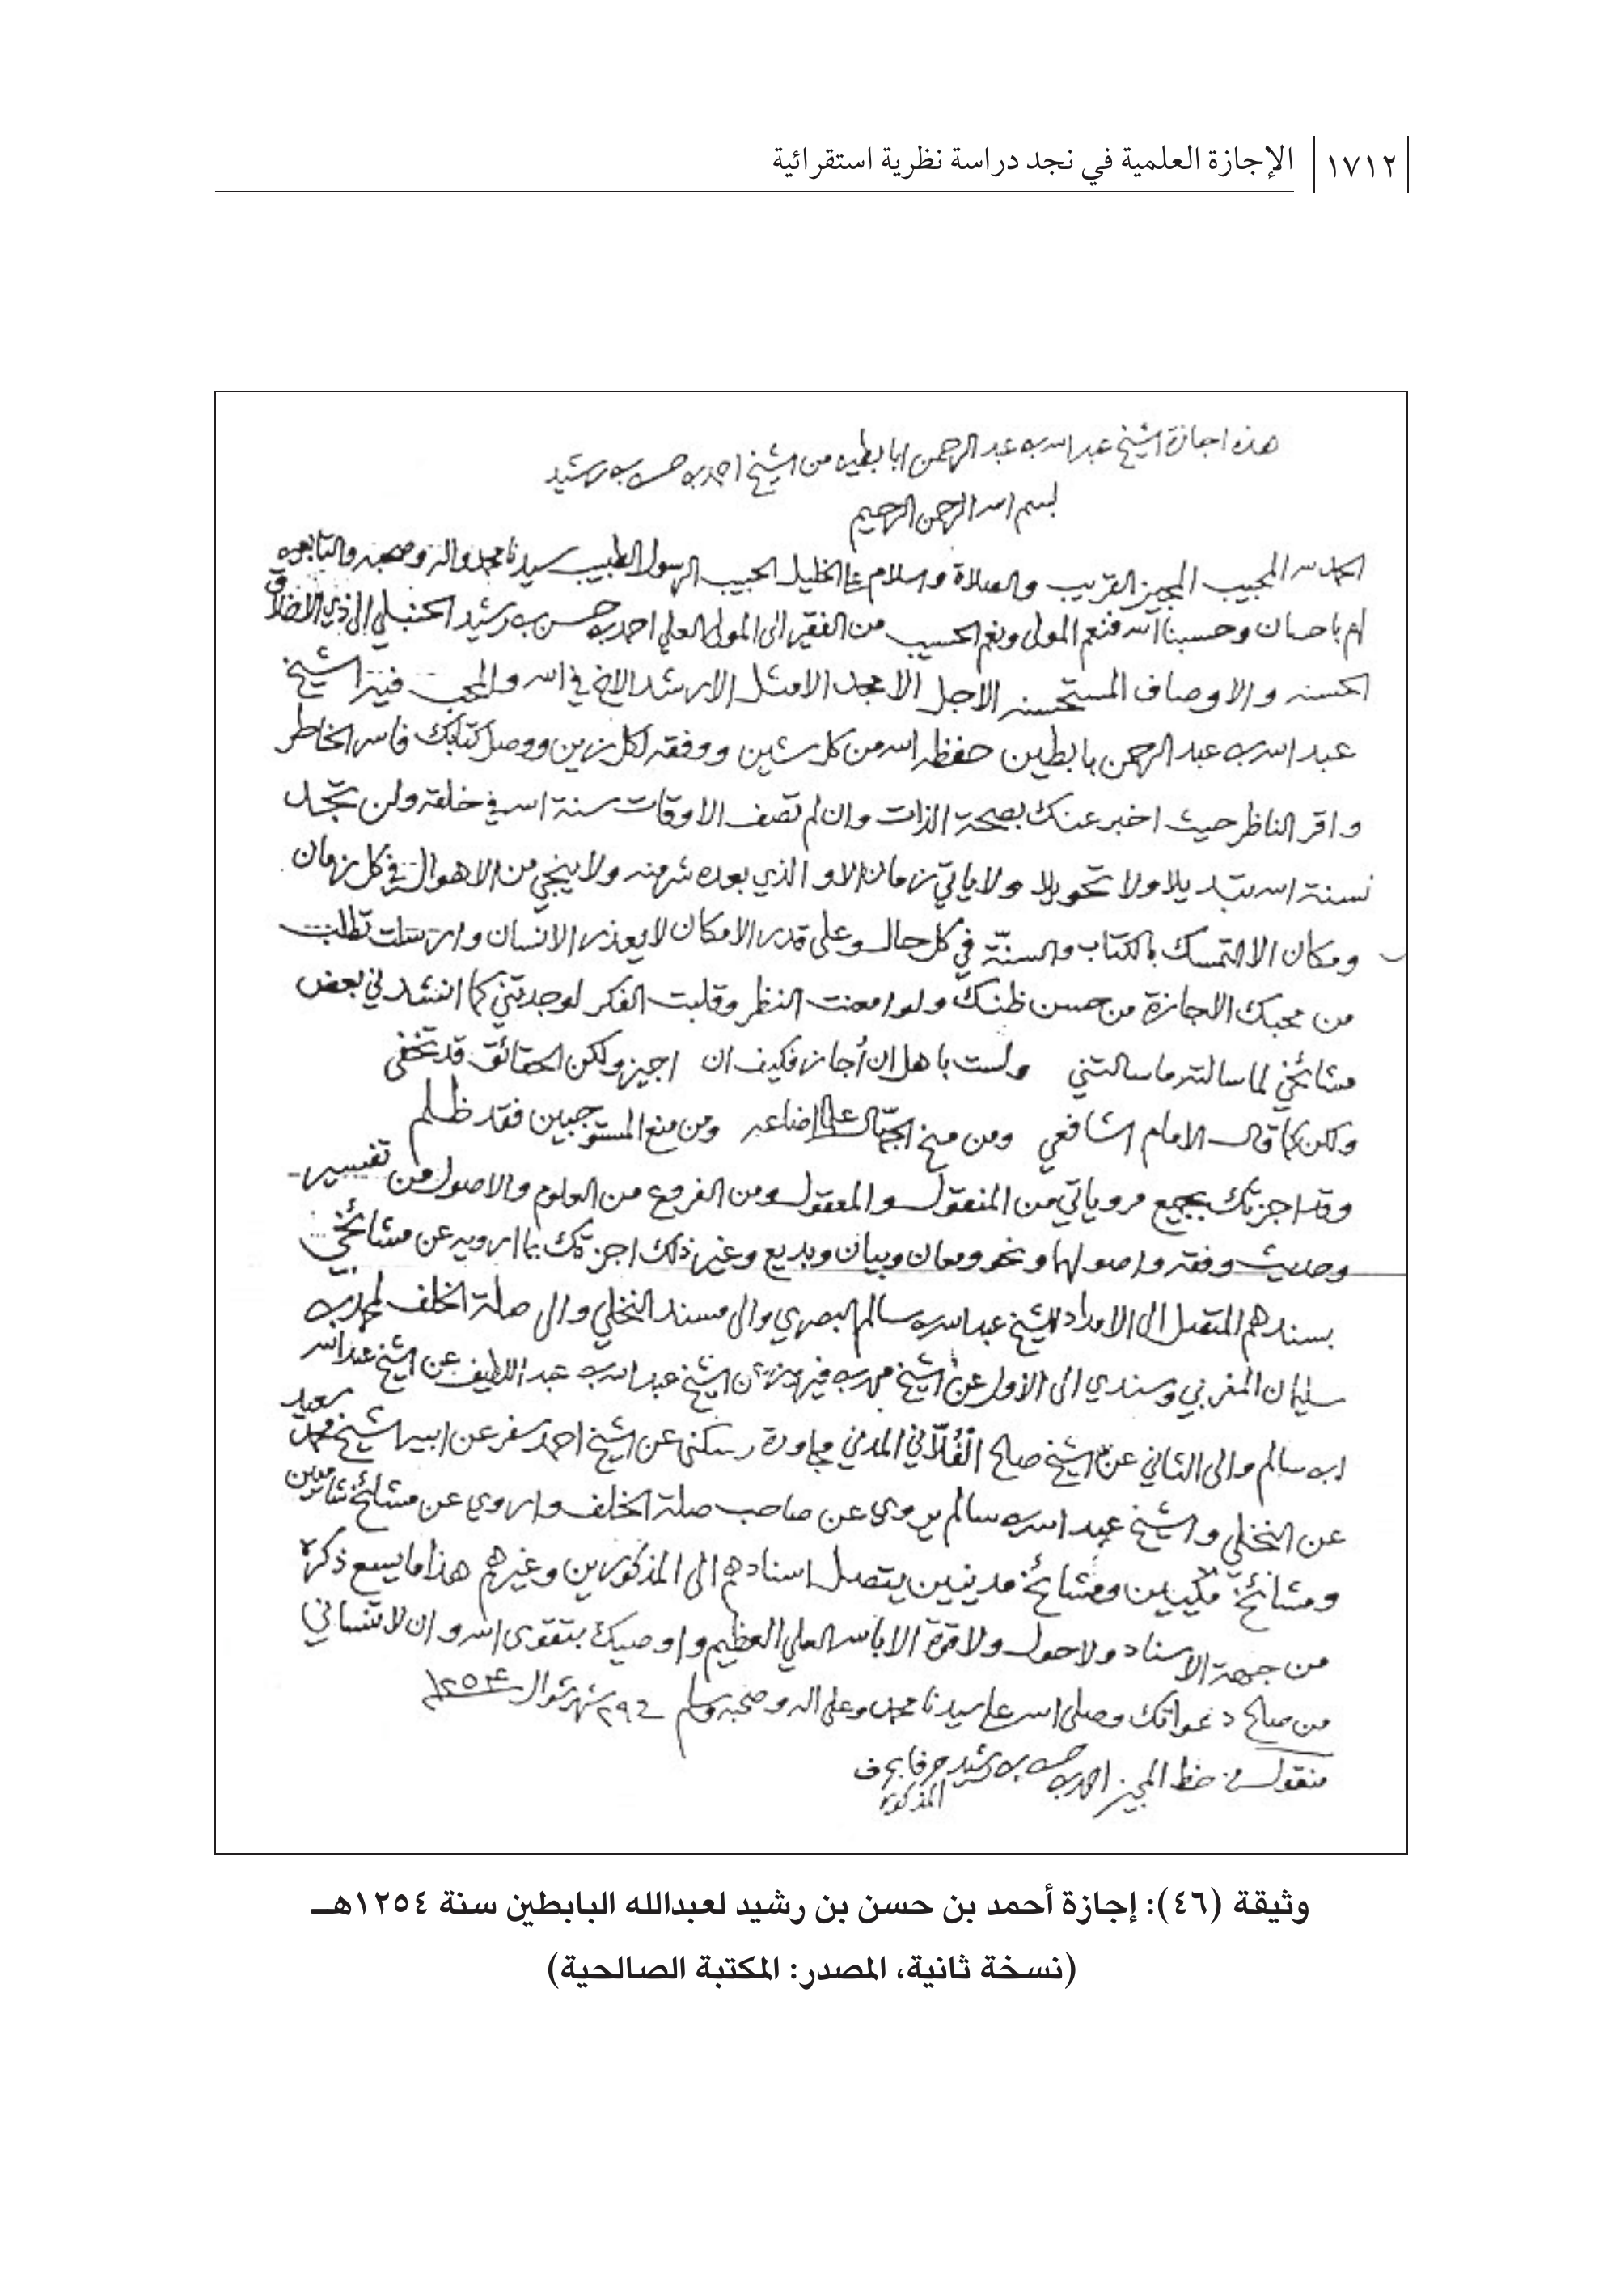 ١٧١٢ الإجازة العلمية في نجد دراسة نظرية استقرائية
هذه اجازة الشيخ عبد الله بن عبد الرحمن ابابطين من الشيخ احمد بن حسن بن رشيد
بسم الله الرحمن الرحيم
الحمد لله المجيب المجيز القريب والصلاة والسلام على الخليل الحبيب الرسول الطبيب سيدنا محمد واله وصحبه والتابعين
لهم باحسان وحسبنا الله فنعم المولى ونعم الحسيب من الفقير الى المولى العلي احمد بن حسن بن رشيد الحنبلي الى ذي الاخلاق
الحسنه والاوصاف المستحسنه الاجل الامجد الامثل الارشد الاخ في الله والمحب فيه الشيخ
عبد الله بن عبد الرحمن بابطين حفظه الله من كل شين ووفقه لكل زين ووصل كتابك فاسر الخاطر
واقر الناظر حيث اخبر عنك بصحة الذات وان لم تصف الاوقات سنة الله في خلقه ولن تجد
لسنة الله تبديلا ولا تحويلا ولا ياتي زمان الا والذي بعده شر منه ولا ينجي من الاهوال في كل زمان
ومكان الا التمسك بالكتاب والسنّة في كل حال وعلى قدر الامكان لا يعذر الانسان وارسلت تطلب
من محبك الاجازة من حسن ظنك ولو امعنت النظر وقلبت الفكر لوجدتني كما انشدني بعض
مشائخي لما سالته ما سالتني ولست باهل ان أجاز فكيف ان اجيز ولكن الحقائق قد تخفى
ولكن كما قال الامام الشافعي ومن منح الجهّال علما اضاعه ومن منع المستوجبين فقد ظلم
وقد اجزتك بجميع مروياتي من المنقول والمعقول ومن الفروع من العلوم والاصول من تفسير
وحديث وفقه واصولها ونحو ومعان وبيان وبديع وغير ذلك اجزتك بما ارويه عن مشائخي
بسندهم المتصل الى الامداد للشيخ عبد الله بن سالم البصري والى مسند النخلي والى صلة الخلف لمحمد بن
سليمان المغربي وسندي الى الاول عن الشيخ محمد بن فيروز عن الشيخ عبد الله بن عبد اللطيف عن الشيخ عبد الله
ابن سالم والى الثاني عن الشيخ صالح الْفُلّاني المدني مجاورة وسكنى عن الشيخ احمد سفر عن ابيه الشيخ محمد سعيد
عن النخلي والشيخ عبد الله بن سالم يروي عن صاحب صلة الخلف واروي عن مشائخ شاميين
ومشائخ مكيين ومشائخ مدنيين يتصل اسنادهم الى المذكورين وغيرهم هذا ما يسع ذكره
من جهة الاسناد ولا حول ولا قوة الا بالله العلي العظيم واوصيك بتقوى الله وان لا تنساني
من صالح دعواتك وصلى الله على سيدنا محمد وعلى اله وصحبه وسلم شهر شوال ١٢٥٤
منقول من خط المجيز احمد بن حسن بن رشيد حرفا بحرف
المذكور
وثيقة (٤٦): إجازة أحمد بن حسن بن رشيد لعبدالله البابطين سنة ١٢٥٤هـ
(نسخة ثانية، المصدر: المكتبة الصالحية)